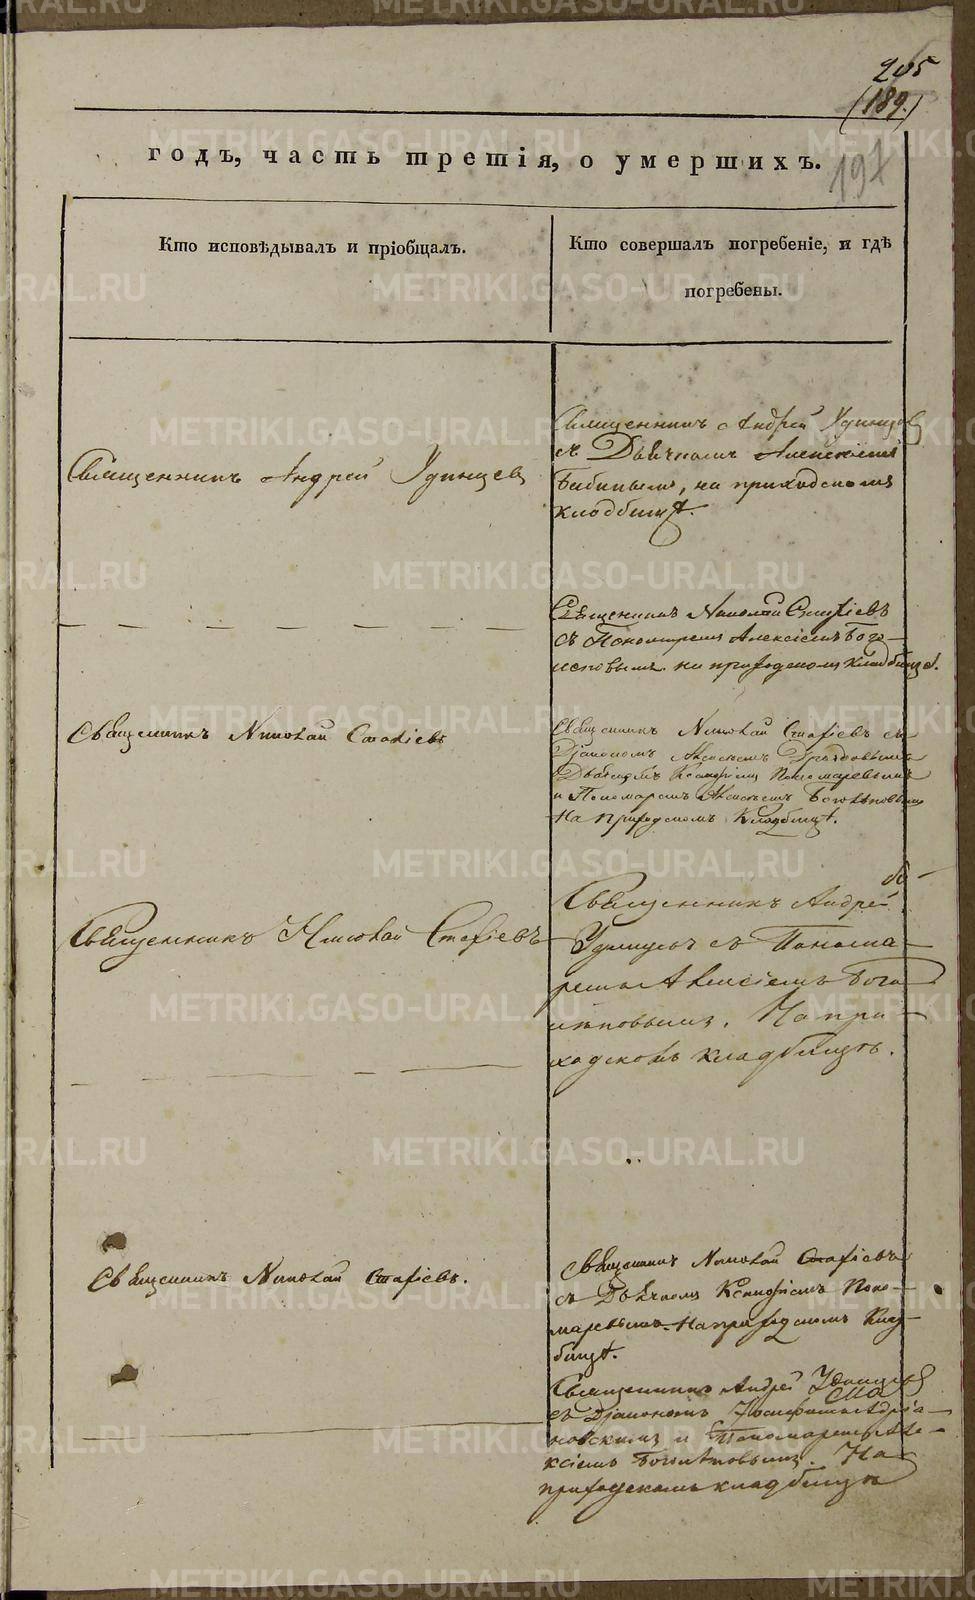 205
(189.)
197
годъ, часть третія, о умершихъ.
Кто исповѣдывалъ и пріобщалъ.
Кто совершалъ погребеніе, и гдѣ
погребены.
Священникъ Андрей Удинцев
Священникъ Андрей Удинцов
съ Дьячкомъ Алексіемъ
Бабинымъ, на приходскомъ
кладбищѣ.
Священникъ Николай Стафіевъ
съ Пономаремъ Алексіемъ Бого-
на приходскомъ кладбищѣ.
Священникъ Николай Стафіевъ
Священникъ Николай Стафіевъ съ
Діакономъ
Дьячкомъ Ксенофонт Пономаревымъ
и Пономаремъ
На приходскомъ Кладбищѣ.
Священникъ Николай Стефіевъ
Священникъ Андрей
съ Понома-
ремъ Алексіемъ Бого
На при-
ходскомъ кладбищѣ.
Священникъ Николай Стафіевъ.
Священникъ Николай Стафіевъ
съ Дьячкомъ Поно-
маревымъ. На приходскомъ Клад-
бищѣ.
Священникъ Андрей Удинцов
съ Діакономъ Адріа-
новскимъ и Пономаремъ Але-
ксіемъ На
приходскомъ кладбищѣ
METRIKI.GASO-URAL.RU